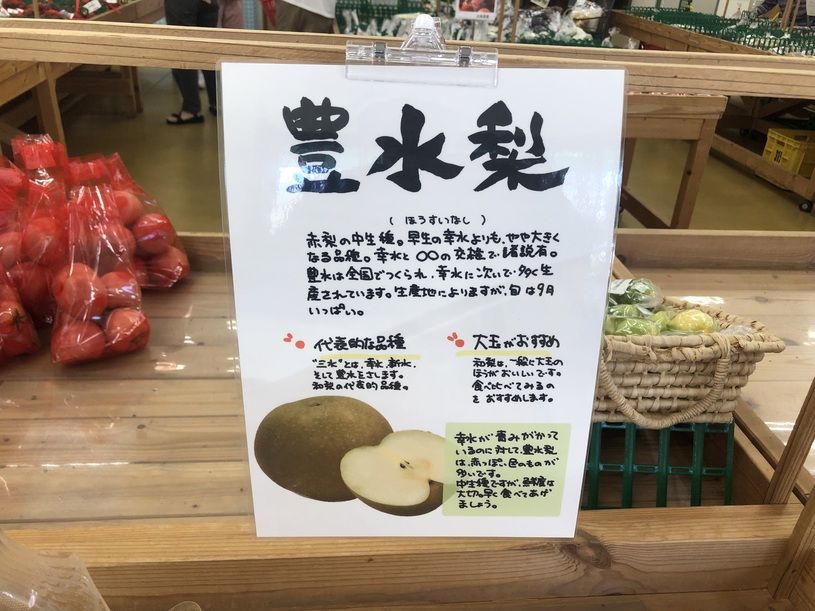 豊水梨
(ほうすいなし)
赤梨の中生種。早生の幸水よりも、やや大きく
なる品種。幸水と〇〇の交雑で諸説有。
豊水は全国でつくられ、幸水に次いで多く生
産されています。生産地によりますが、旬は9月
いっぱい。
代表的な品種
"三水"とは、幸水、新水、
そして豊水をさします。
和梨の代表的品種。
大玉がおすすめ
和梨は、一般に大玉の
ほうがおいしいです。
食べ比べてみるの
を おすすめします。
幸水が青みがかって
いるのに対して、豊水梨
は、赤っぽい色のものが
多いです。
中生種ですが、鮮度は
大切。早く食べてあげ
ましょう。